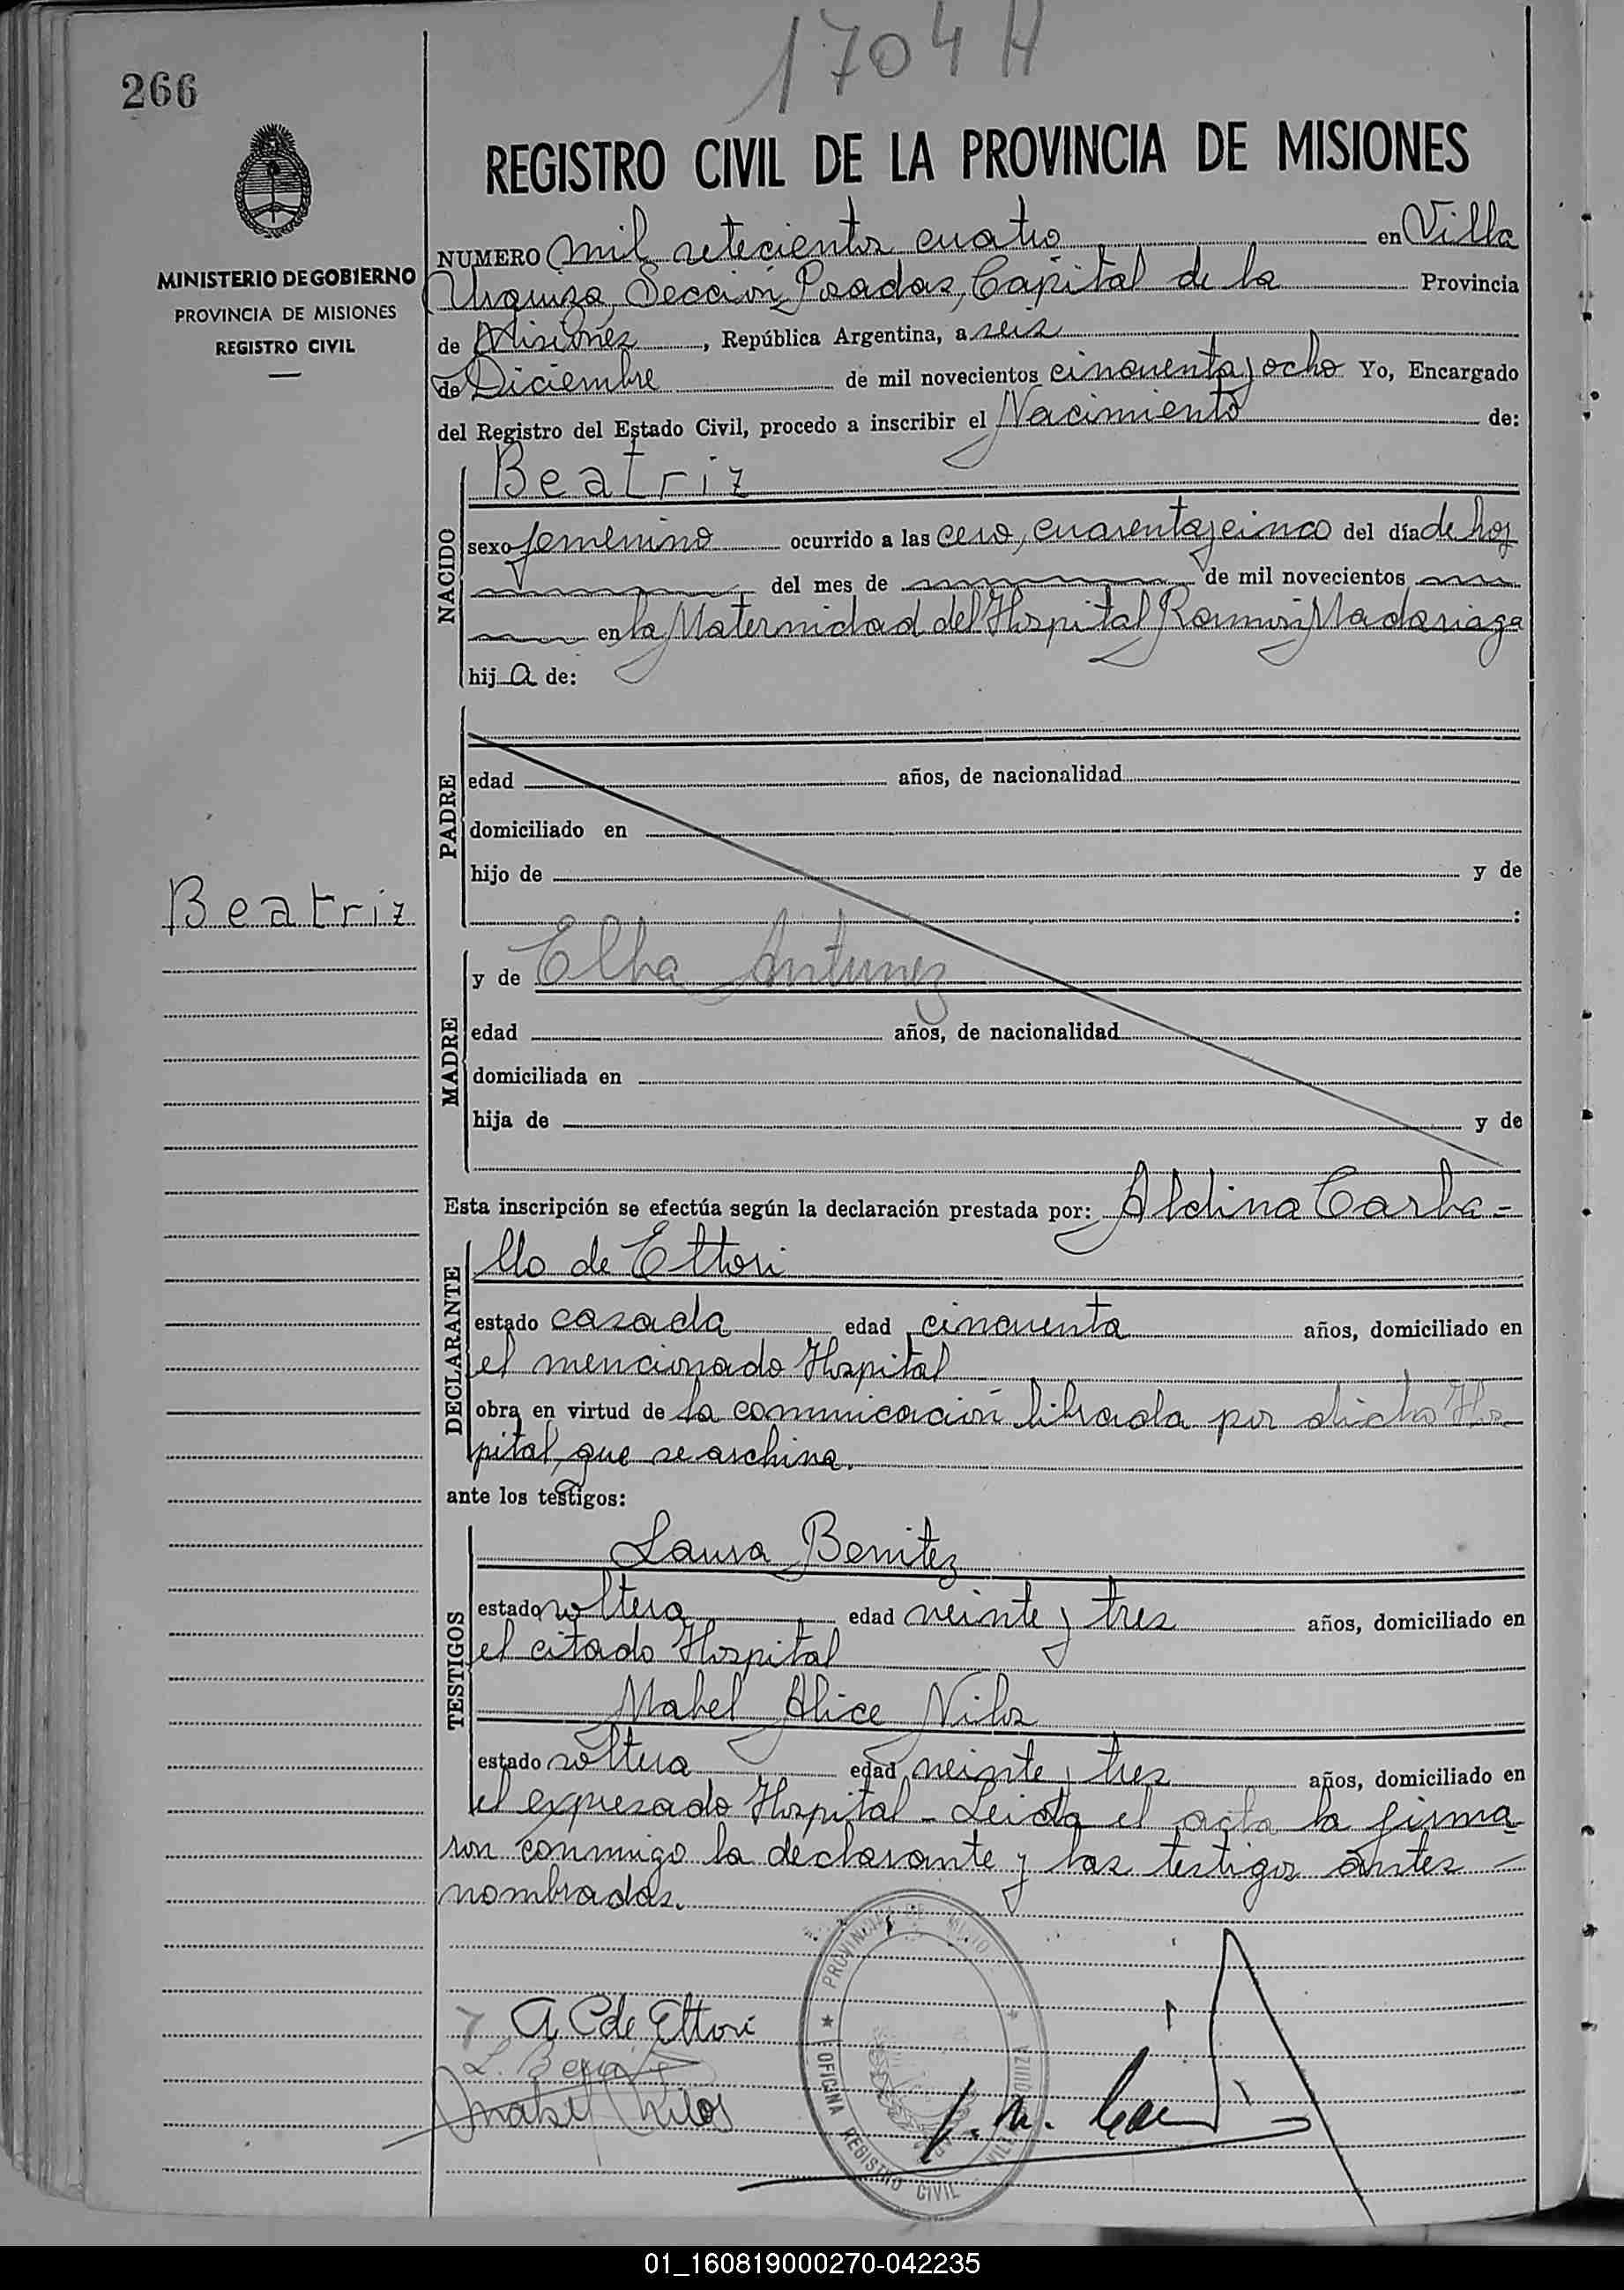 1704 H
266
REGISTRO CIVIL DE LA PROVINCIA DE MISIONES
MINISTERIO DE GOBIERNO
PROVINCIA DE MISIONES
REGISTRO CIVIL
NUMERO mil setecientos cuatro en Villa
Urquiza, Sección Posadas, Capital de la Provincia
de Misiones, República Argentina, a seis
de Diciembre de mil novecientos cincuenta y ocho Yo, Encargado
del Registro del Estado Civil, procedo a inscribir el Nacimiento de:
NACIDO
Beatriz
sexo femenino ocurrido a las cero, cuarenta y cinco del día de hoy
del mes de de mil novecientos
en la Maternidad del Hospital Ramón Madariaga
hija de:
PADRE
edad años, de nacionalidad
domiciliado en
hijo de y de
:
Beatriz
MADRE
y de Elba Antunez
edad años, de nacionalidad
domiciliada en
hija de y de
Esta inscripción se efectúa según la declaración prestada por: Aldina Carba-
DECLARANTE
llo de Ettori
estado casada edad cincuenta años, domiciliado en
el mencionado Hospital
obra en virtud de la comunicación librada por dicho Hos
pital, que se archiva.
ante los testigos:
TESTIGOS
Laura Benitez
estado soltera edad veinte y tres años, domiciliado en
el citado Hospital
Mabel Alice Nilos
estado soltera edad veinte y tres años, domiciliado en
el expresado Hospital - Leida el acta la firma
ron conmigo la declarante y las testigos antes -
nombradas.
A C de Ettori
L. Benitez
Mabel Nilos
PROVINCIA DE MISIO
OFICINA REGISTRO CIVIL
01_160819000270-042235